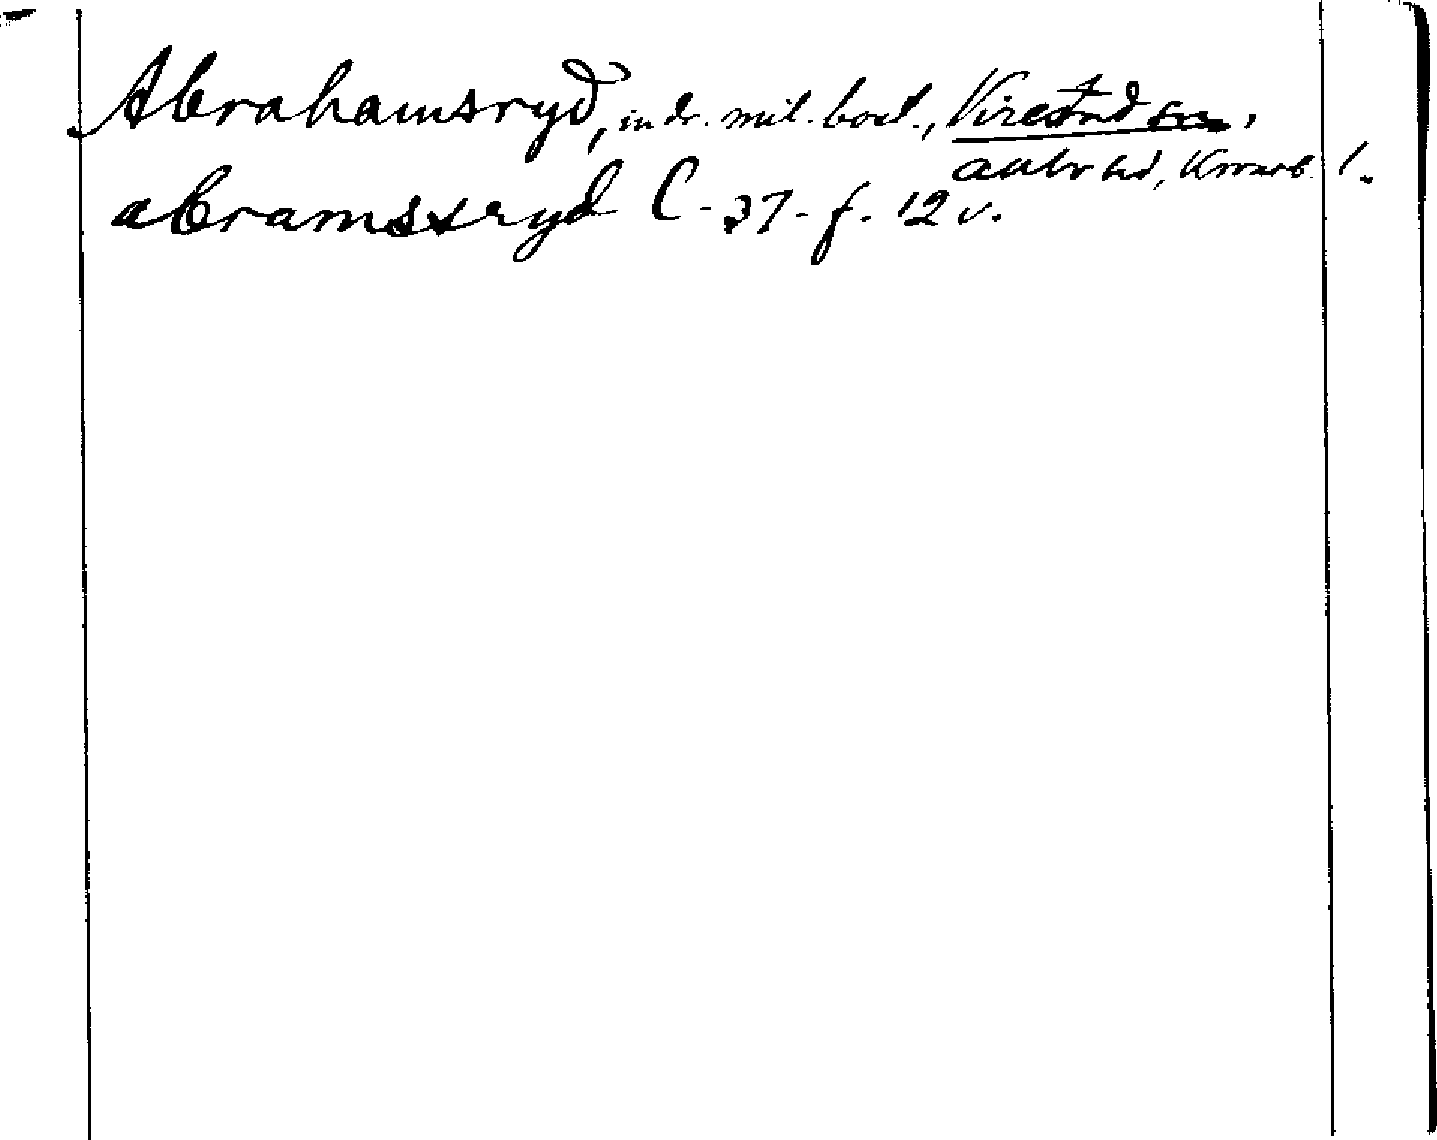 Abrahamsryd, indr. mil. bost., Virestad sn,
Allbo hd, Kronob. l.
abramsxryd C-37-f. 12 v.